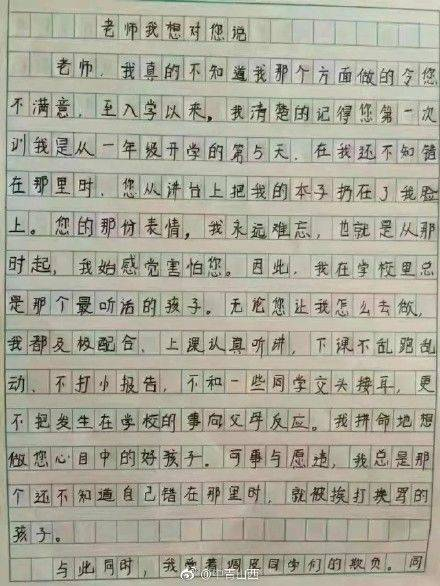 老师我想对您说
老师，我真的不知道我那个方面做的令您
不满意，至入学以来，我清楚的记得您第一次
训我是从一年级开学的第5天，在我还不知错
在那里时，您从讲台上把我的本子扔在了我脸
上。您的那份表情，我永远难忘，也就是从那
时起，我始感觉害怕您。因此，我在学校里总
是那个最听话的孩子。无论您让我怎么去做，
我都及极配合，上课认真听讲，下课不乱跑乱
动、不打小报告，不和一些同学交头接耳，更
不把发生在学校的事向父母反应。我拼命地想
做您心目中的好孩子。可事与愿违，我总是那
个还不知道自己错在那里时，就被挨打挨骂的
孩子。
与此同时，我受着周围同学们的欺负。同
@中青山西